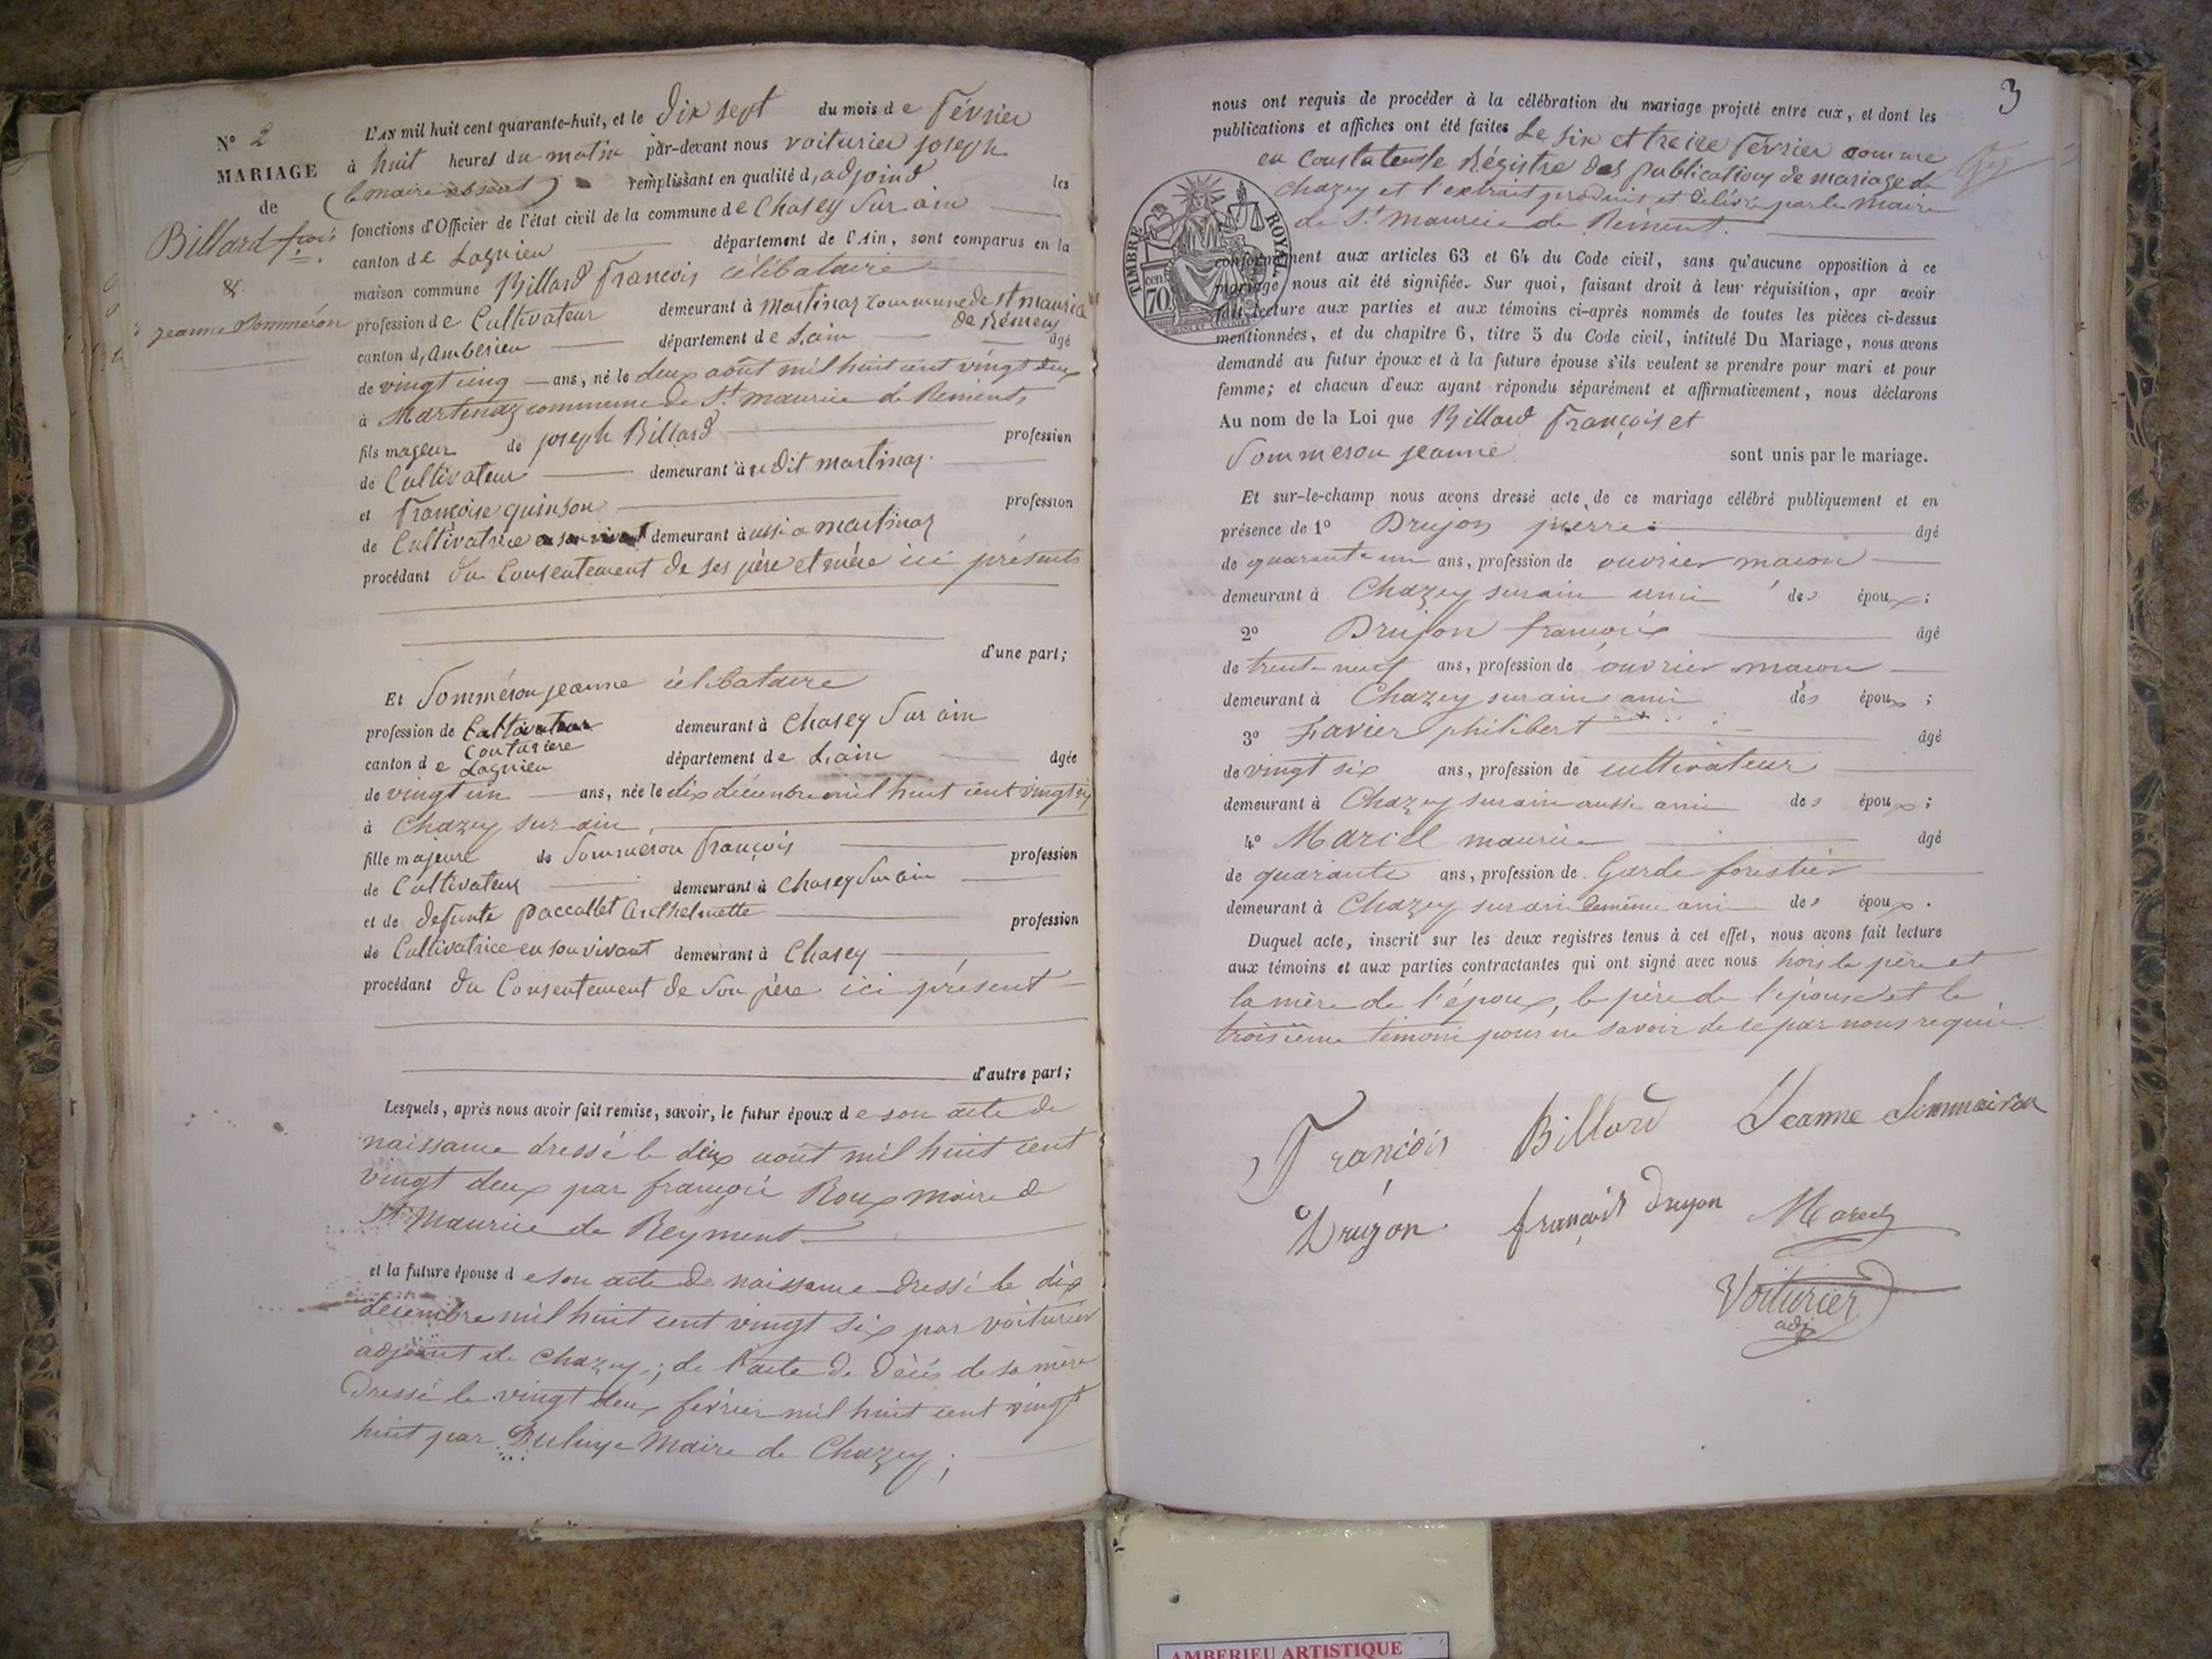 N° 2
MARIAGE
de
Billard fçois
&
jeanne Sommeron
L'AN mil huit cent quarante-huit, et le Dix sept du mois de Février
à huit heures du matin par-devant nous voiturier joseph
(le maire absent) remplissant en qualité d'adjoind les
fonctions d'Officier de l'état civil de la commune de Chasey Sur ain
canton de Lagnieu département de l'Ain, sont comparus en la
maison commune Billard François célibataire
profession de Cultivateur demeurant à Martinaz commune de st maurice
de Rémens
canton d'Amberieu département de L'ain âgé
de vingt cinq ans, né le deux août mil huit cent vingt deux
à Martinaz commune de St. maurice de Remens
fils majeur de joseph Billard profession
de Cultivateur demeurant à udit martinaz
et Françoise quinson profession
de Cultivatrice demeurant à aussi a martinaz
procédant du Consentement de ses père et mère ici présents
d'une part;
Et Sommeron jeanne célibataire
profession de Cultivateur demeurant à Chasey Sur ain
Couturière
canton de Lagnieu département de L'ain âgée
de vingt un ans, née le dix décembre mil huit cent vingt six
à Chazey sur ain
fille majeure de Sommeron François profession
de Cultivateur demeurant à Chasey Sur ain
et de defunte Paccallet Anthelmette profession
de Cultivatrice en son vivant demeurant à Chasey
procédant du Consentement de Son père ici présent
d'autre part;
Lesquels, après nous avoir fait remise, savoir, le futur époux de son acte de
naissance dressé le deux août mil huit cent
vingt deux par françois Roux maire de
St Maurice de Reyment
et la future épouse de son acte de naissance dressé le dix
décembre mil huit cent vingt six par voiturier
adjoint de Chazey; de l'acte de décès de sa mère
dressé le vingt deux février mil huit cent vingt
huit par Maire de Chazey;
3
nous ont requis de procéder à la célébration du mariage projeté entre eux, et dont les
publications et affiches ont été faites Le six et treize Février comme
en constate le Régistre des publications de mariage de
chazey et l'extrait produit et délivré par le Maire
de St. maurice de Rément.
TIMBRE ROYAL
70 cen
conformément aux articles 63 et 64 du Code civil, sans qu'aucune opposition à ce
mariage nous ait été signifiée. Sur quoi, faisant droit à leur réquisition, apr avoir
fait lecture aux parties et aux témoins ci-après nommés de toutes les pièces ci-dessus
mentionnées, et du chapitre 6, titre 5 du Code civil, intitulé Du Mariage, nous avons
demandé au futur époux et à la future épouse s'ils veulent se prendre pour mari et pour
femme; et chacun d'eux ayant répondu séparément et affirmativement, nous déclarons
Au nom de la Loi que Billard François et
Sommeron jeanne sont unis par le mariage.
Et sur-le-champ nous avons dressé acte de ce mariage célébré publiquement et en
présence de 1° Drujon pierre âgé
de quarante un ans, profession de ouvrier maçon
demeurant à Chazey sur ain ami des époux;
2° Drujon françois âgé
de trente neuf ans, profession de ouvrier maçon
demeurant à Chazey sur ain ami des époux;
3° Favier philibert âgé
de vingt six ans, profession de cultivateur
demeurant à Chazey sur ain aussi ami des époux;
4° Marcel maurice âgé
de quarante ans, profession de Garde forestier
demeurant à Chazey sur ain demême ami des époux.
Duquel acte, inscrit sur les deux registres tenus à cet effet, nous avons fait lecture
aux témoins et aux parties contractantes qui ont signé avec nous hors le père et
la mère de l'époux, le père de l'épouse et le
troisième témoin pour ne savoir de ce par nous requis.
François Billard Jeanne Sommairon
Drujon françois Drujon Marcel
Voiturier
adj
AMBERIEU ARTISTIQUE